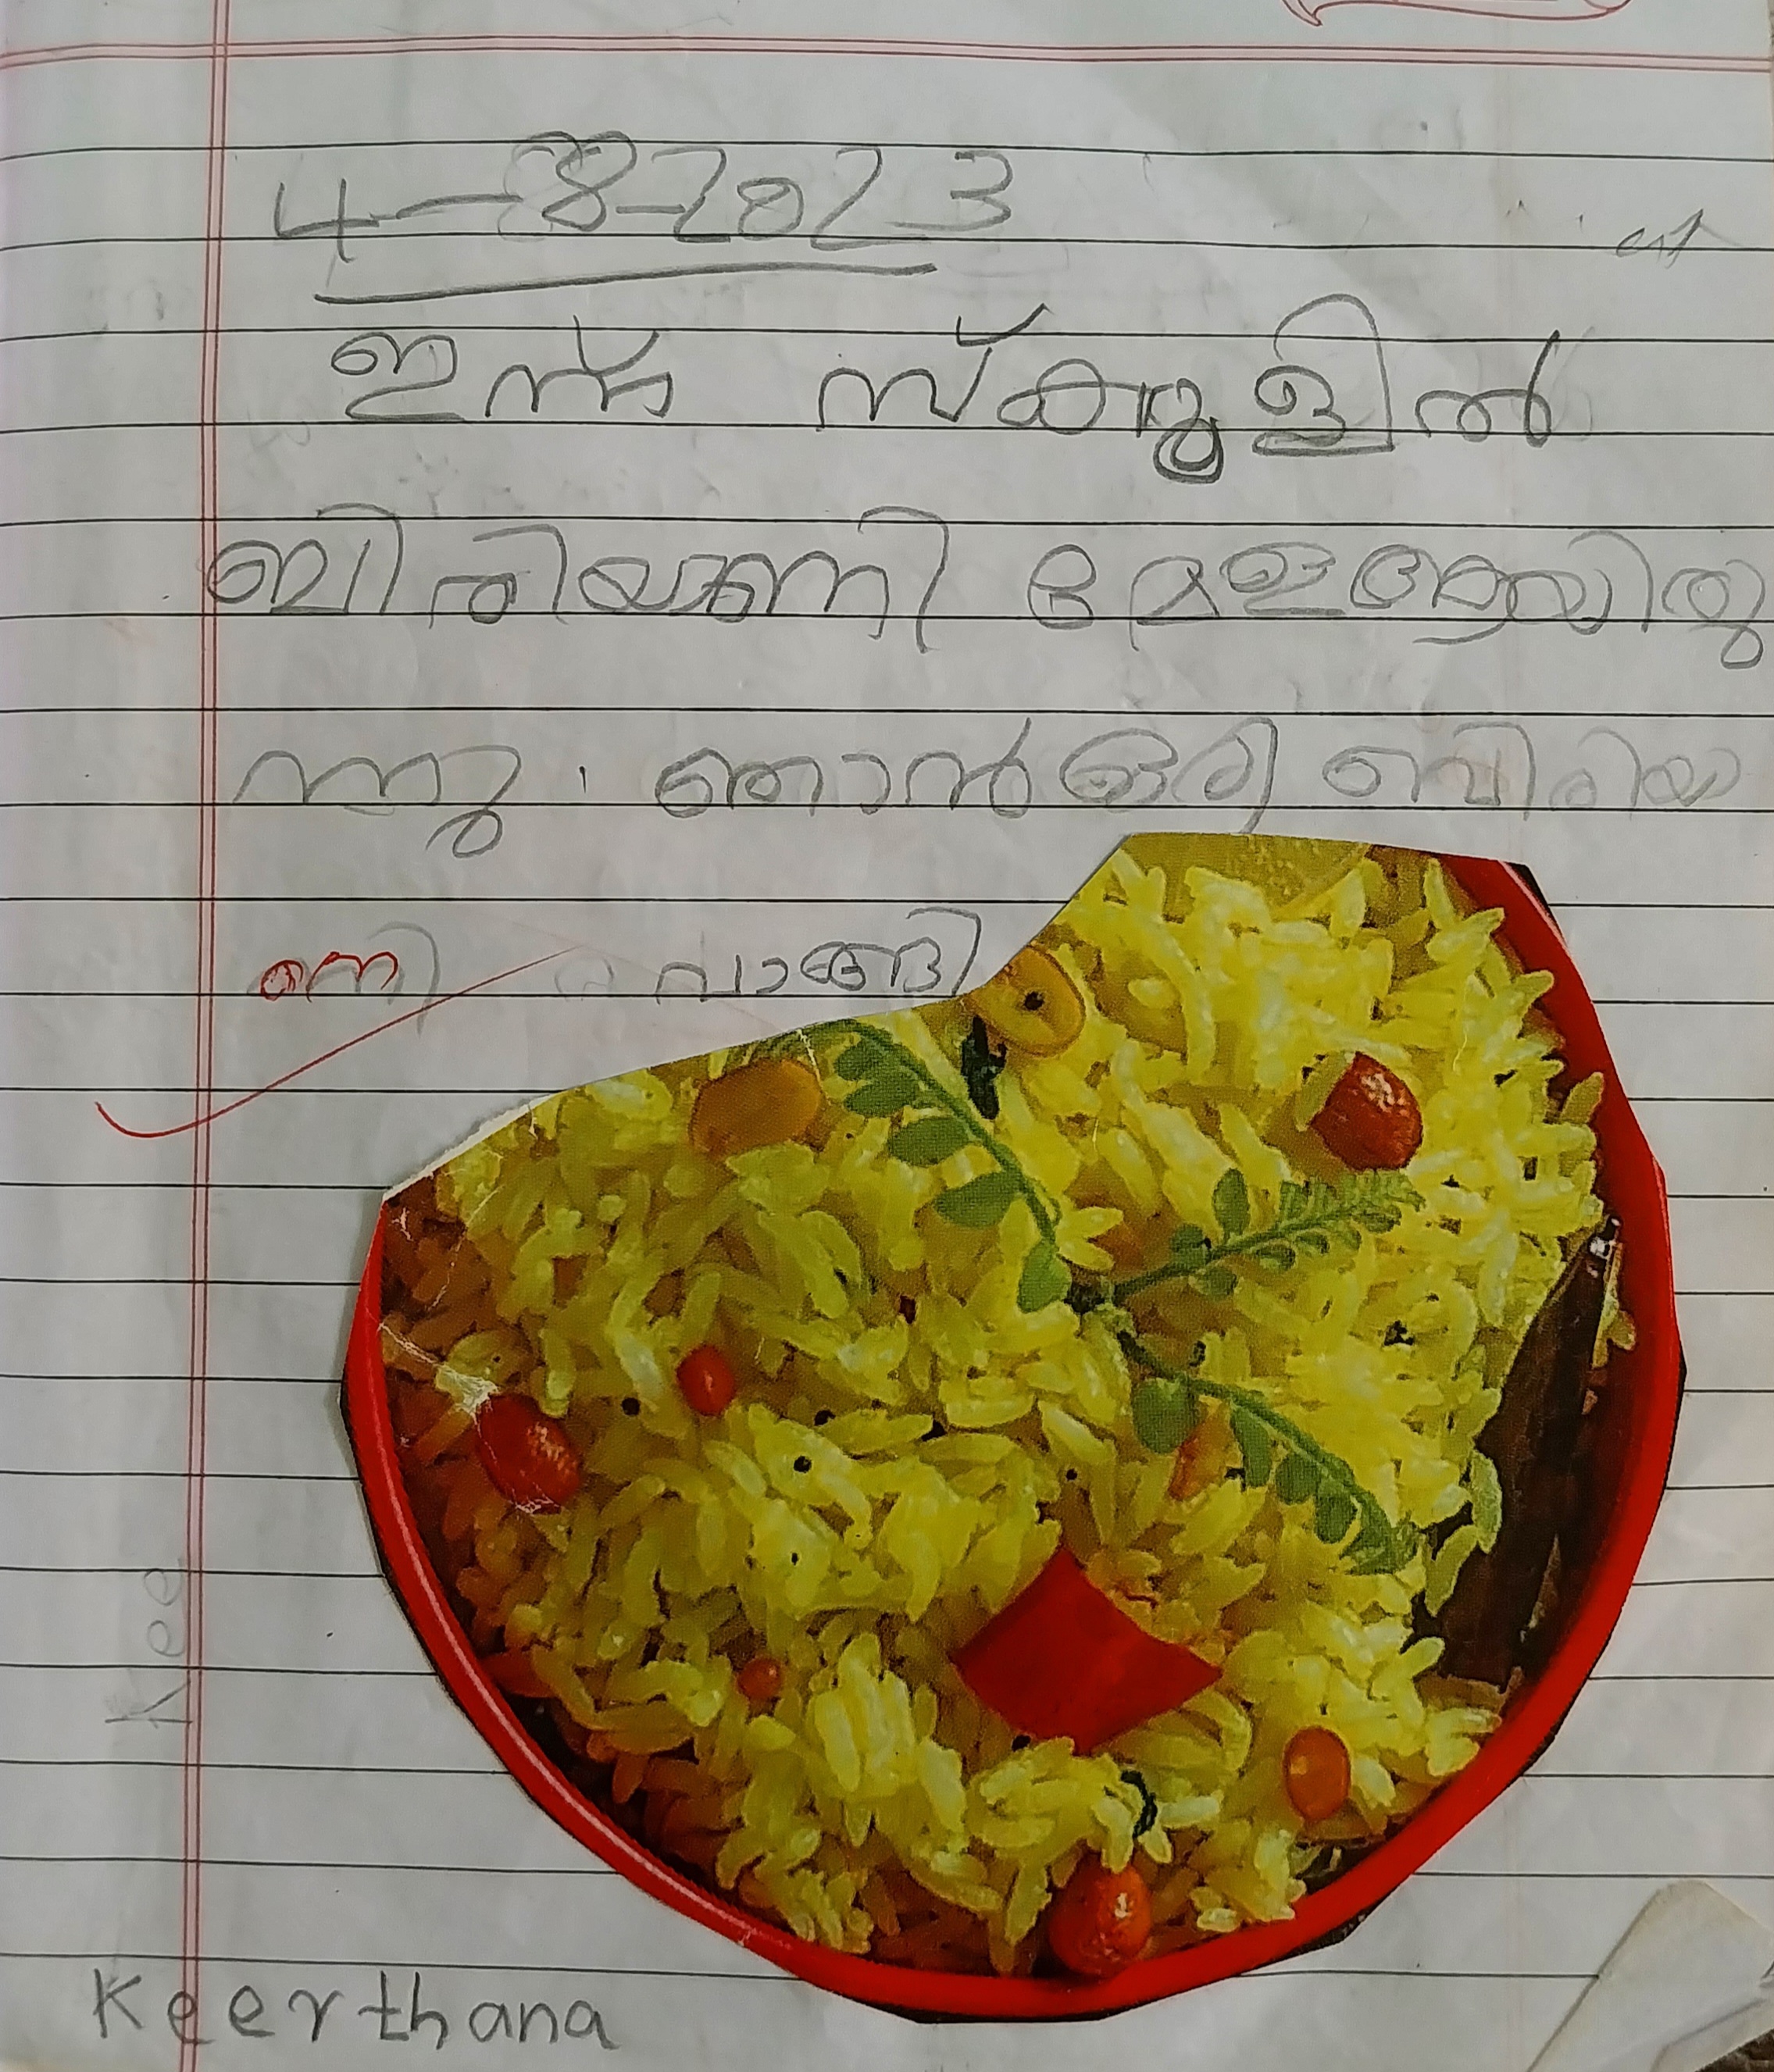 4-8-2023
ഇന്ന് സ്കൂളിൽ
ബിരിയാണി മേളയായിരു
ന്നു. ഞാൻ ഒരു ബിരിയ
ാണി വാങ്ങി
Kee
Keerthana